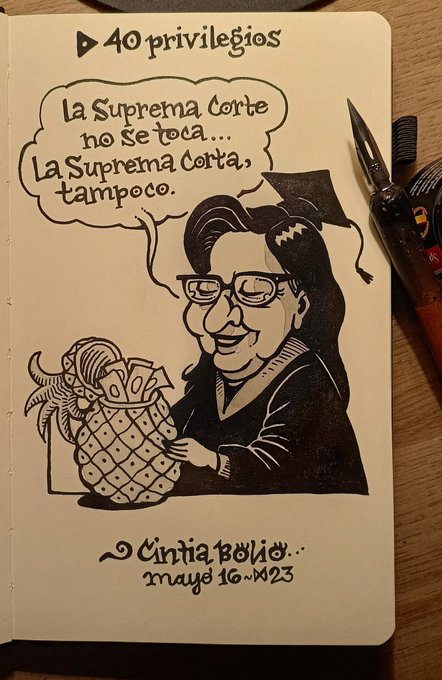 40 privilegios
La Suprema Corte
no se toca...
La Suprema Corta,
tampoco.
Cintia Bolio...
mayo 16~23